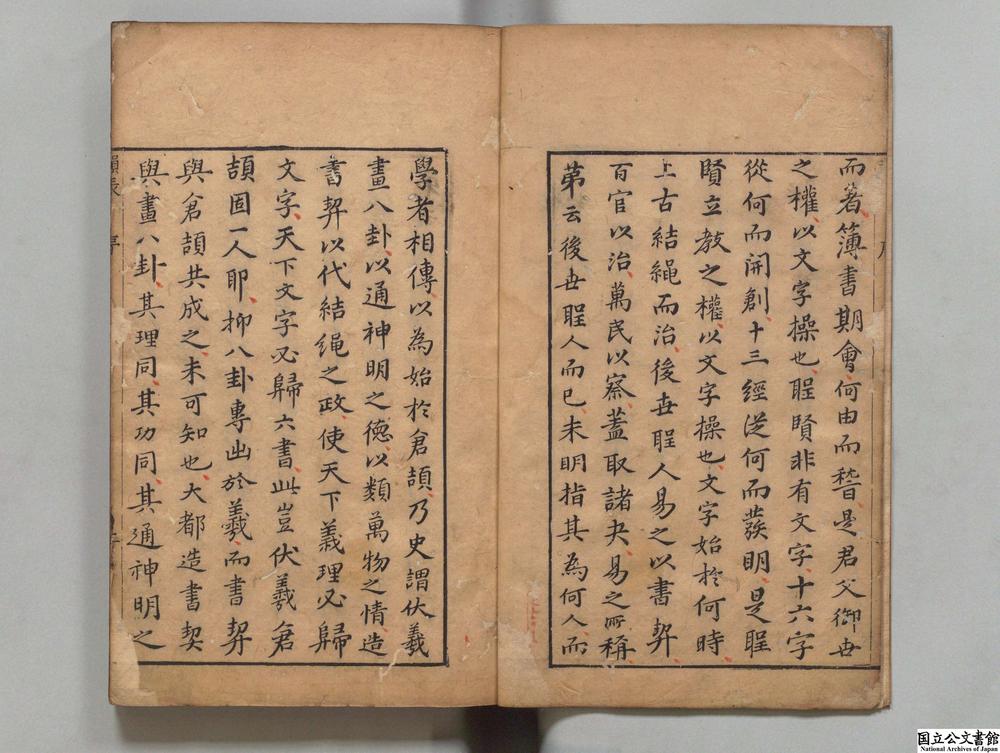 而著簿書期會何由而稽是君父御世
之權以文字操也聖賢非有文字十六字
從何而開創十三經從何而發明是聖
賢立教之權以文字操也文字始於何時
上古結繩而治後世聖人易之以書契
百官以治萬民以察蓋取諸夬易之所稱
第云後世聖人而已未明指其為何人而
學者相傳以為始於倉頡乃史謂伏羲
畫八卦以通神明之德以類萬物之情造
書契以代結繩之政使天下義理必歸
文字天下文字必歸六書此豈伏羲倉
頡固一人耶抑八卦專出於羲而書契
與倉頡共成之未可知也大都造書契
與畫八卦其理同其功同其通神明之
韻表
序
国立公文書館
National Archives of Japan